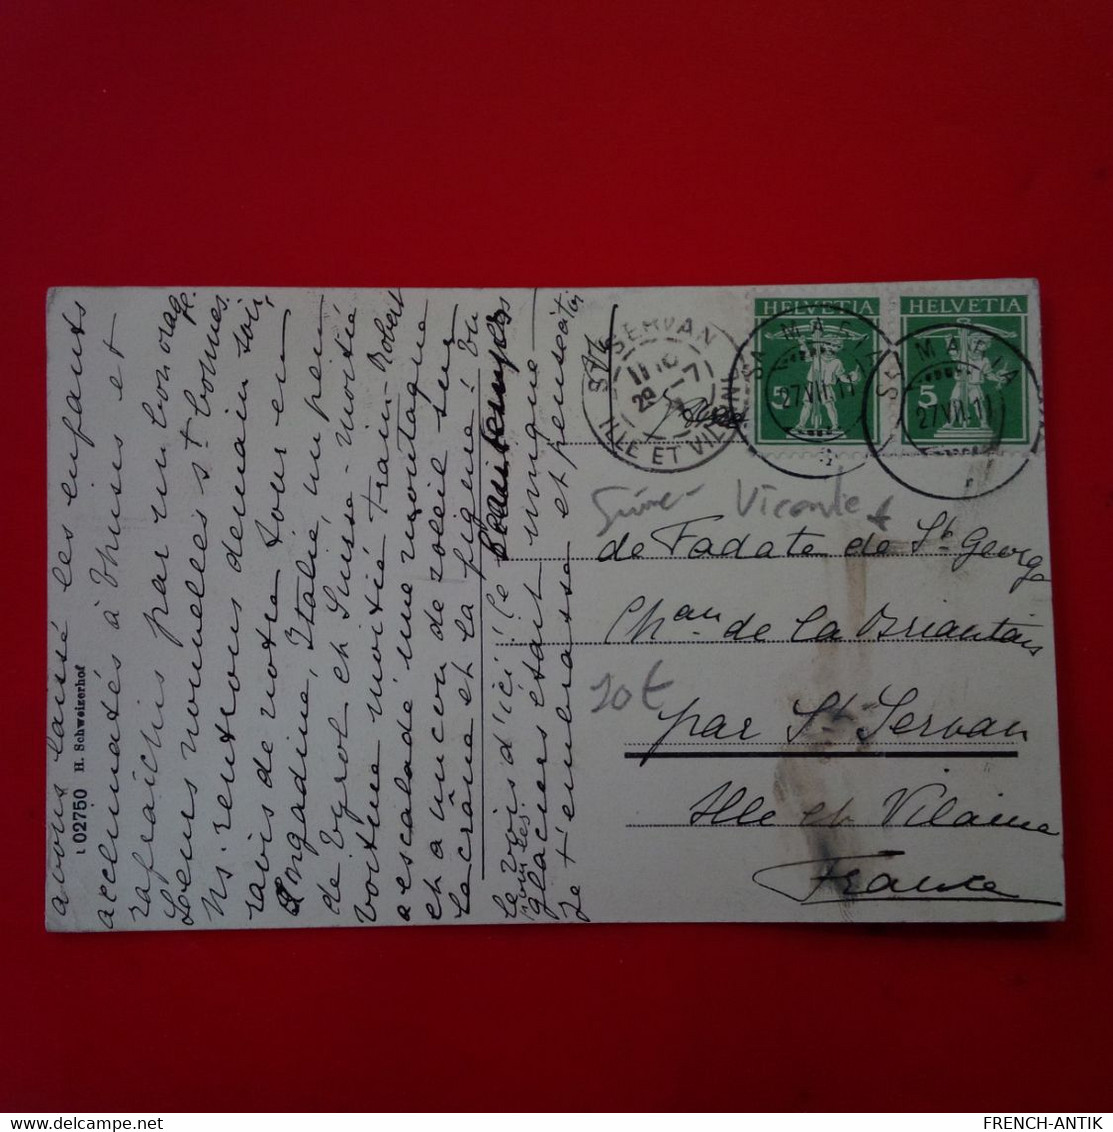 avons laissé les enfants
acclimatés à Thusis et
rafraichis par un bon orage.
Leurs nouvelles st bonnes.
Ns. rentrons demain soir,
ravis de notre tour en
Engadine, Italie, un peu
de Tyrol et Suisse - moitié
voiture moitié train - Robert
a escaladé une montagne
et a un cou de soleil sur
le crâne et la figure! on
le vois d'ici! Le Beautemps
sur les glaciers étant unique
Je t'embrasse et pense à toi
02750 H. Schweizerhof
ST SERVAN
ILLE ET VILAINE
HELVETIA
5
STA MARIA
27.VII.11
HELVETIA
5
STA MARIA
27.VII.11
Vicomte
de Fadate de St Georges
Chau de la Briantais
10 €
par St Servan
Ille et Vilaine
France
FRENCH-ANTIK
delcampe.net